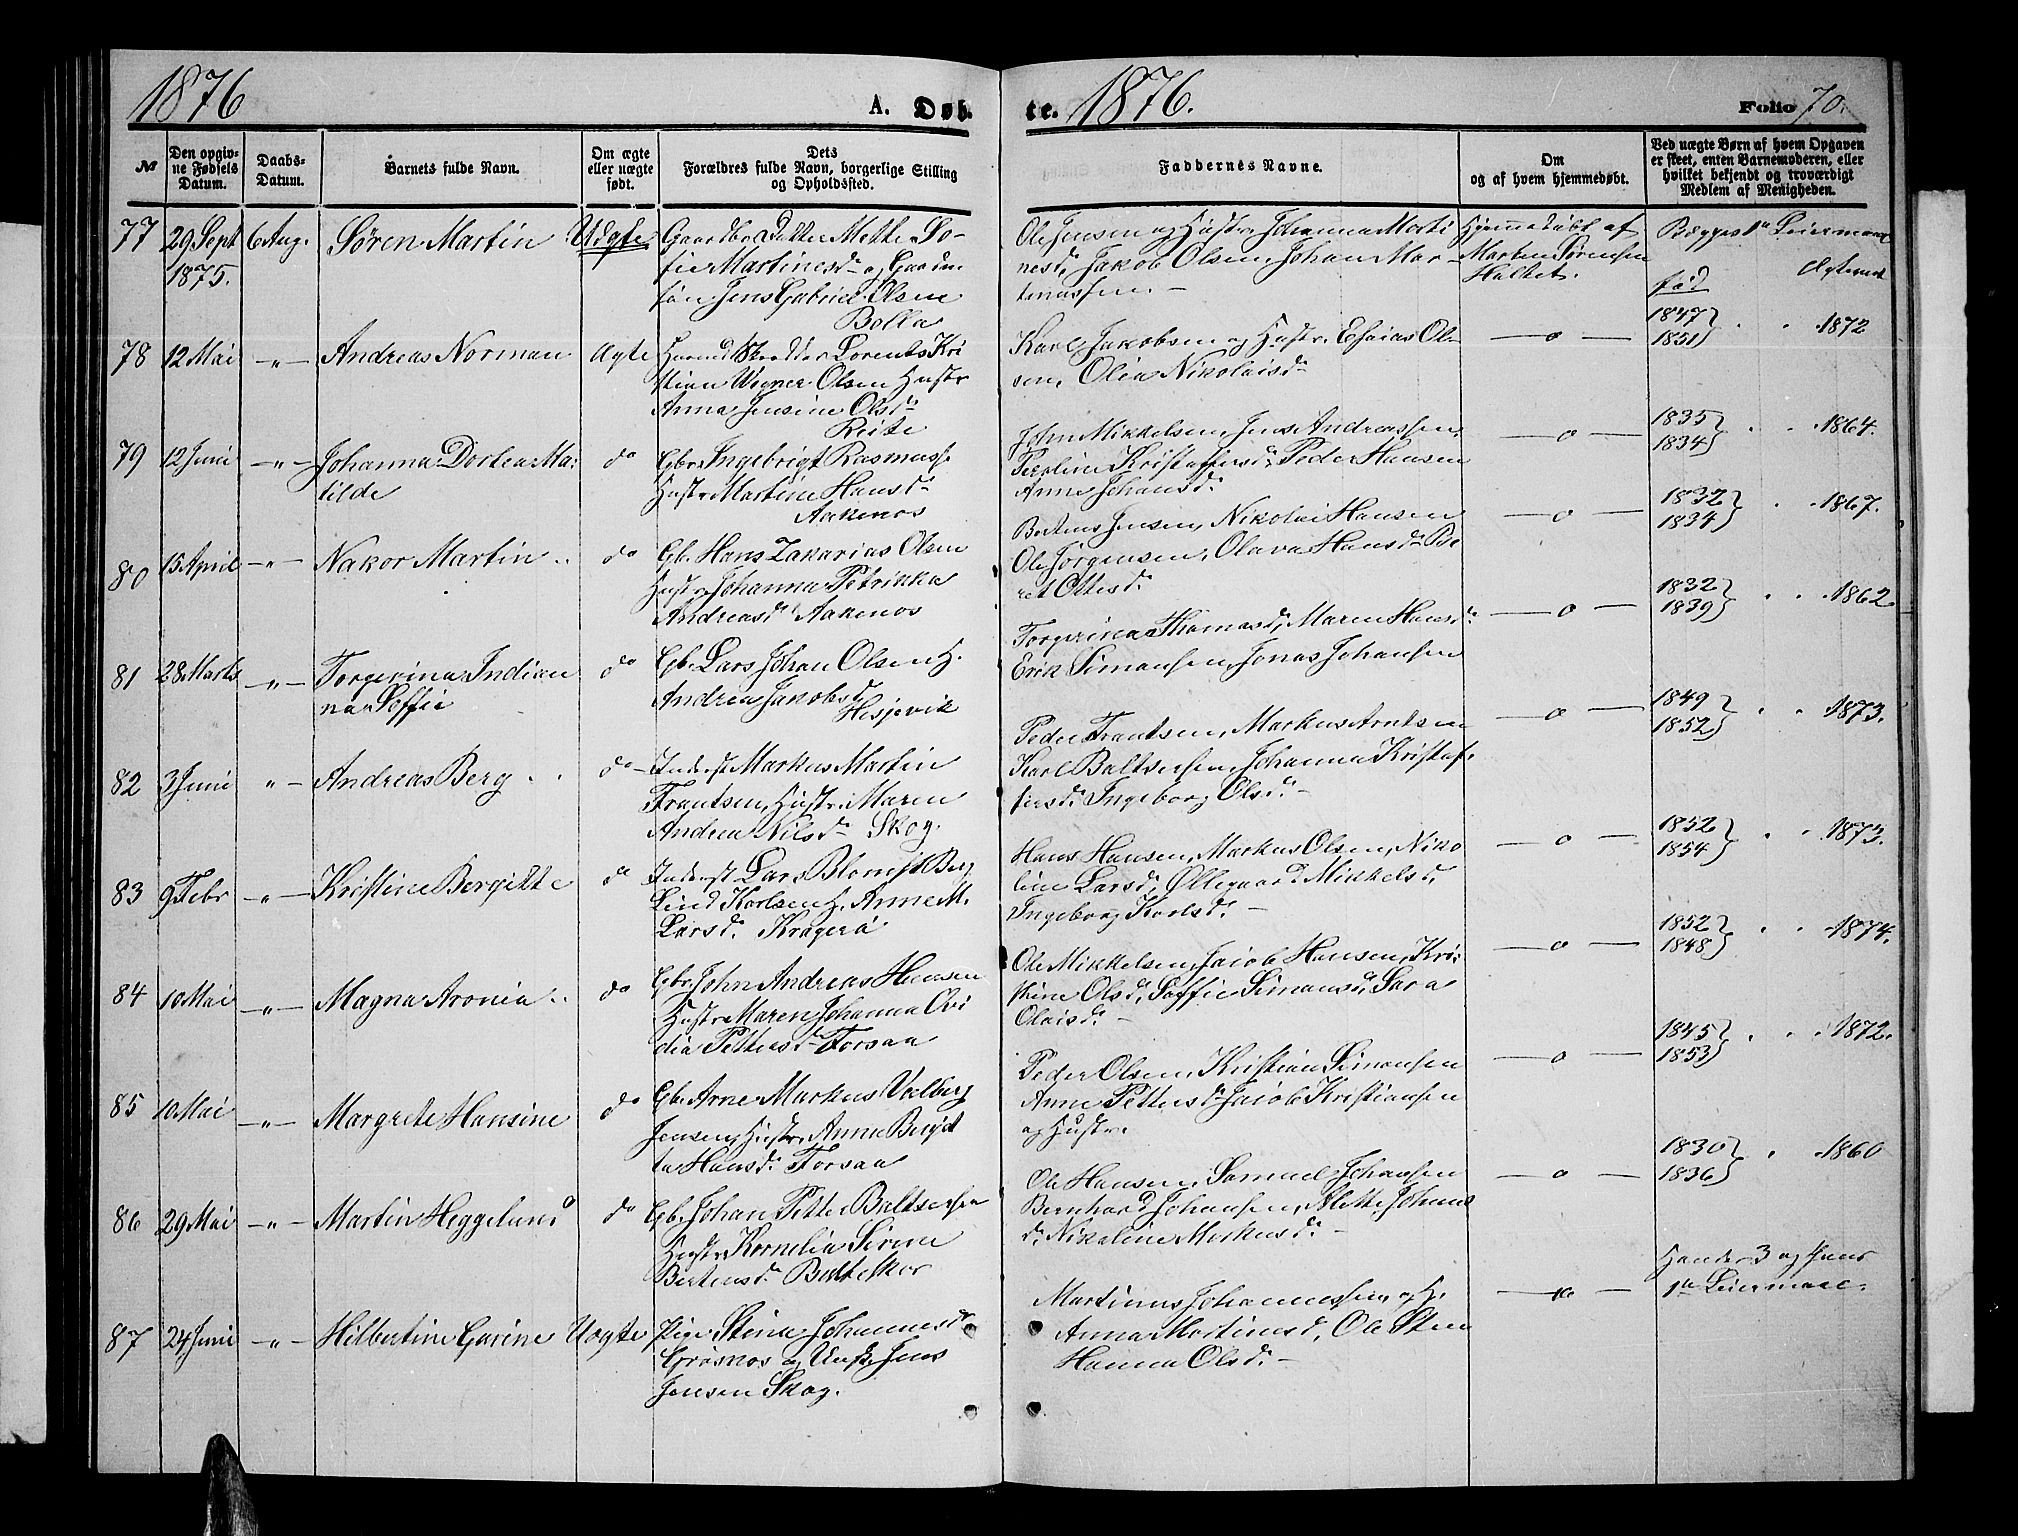 1876
A. Døb-
te. 1876.
Folio 70.
№
Den opgiv-
ne Fødsels
Datum.
Daabs-
Datum.
Barnets fulde Navn.
Om ægte
eller uægte
født.
Dets
Forældres fulde Navn, borgerlige Stilling
og Opholdssted.
Faddernes Navne.
Om
og af hvem hjemmedøbt.
Ved uægte Børn af hvem Opgaven
er skeet, enten Barnemoderen, eller
hvilket bekjendt og troværdigt
Medlem af Menigheden.
77 29 Sept 6 Aug. Sören Martin
1875.
Gaardbr. Datter Mette So-
fie Martinesd. og Gaardm.
sön Jens Gabriel Olsen
Bolla
Ole Jensen og Hustr. Johanna Marti
nesd. Jakob Olsen, Johan Mar-
tinussen. —
Hjemmedöbt af
Morten Sörensen
Begges 1te Leiermaal
född
78 12 Mai —„— Andreas Norman Ægte
Lorents Kri
stian Wigner Olsen Hustr.
Anna Jensine Olsd.
Karl Jakobsen og Hustr. Esaias Ol-
sen, Olia Nikolaisd.
— o —
1847
1851 „ „ 1872
79 12 Juni —„— Johanna Dortea Ma-
tilde
do
Gbr. Ingebrigt Rasmuss.
Hustr. Martine Hansd.
Aakenos
John Mikkelsen, Jens Andreassen,
Peroline Kristoffersd. Peder Hansen
Anne Johansd.
— o —
1835
1834 „ „ 1864.
80 15 April —„— Nakor Martin „ do
Gb. Hans Zakarias Olsen
Hustr. Johanna Petrikka
Andreasd. Aakenos
Bertens Jensen, Nikolai Hansen
Ole Jörgensen, Olava Hansd. Be
ret Ottesd.
— o —
1832
1834 „ „ 1867.
81 28 Marts —„— Torgerina Indian
na Soffie
do
Gb. Lars Johan Olsen H.
Andrea Jakobsd.
Hesjevik
Torgerina Thomasd. Maren Hansd.
Erik Simonsen, Jonas Johansen
— o —
1832
1839 „ „ 1862
82 3 Juni „ — Andreas Berg „ „ do —
Inderst Markus Martin
Frantsen, Hustr. Maren
Andrea Nilsd. Skog.
Peder Frantsen, Markus Arntsen
Karl Baltsersen, Johanna Kristof-
fersd. Ingeborg Olsd. —
— o —
1849
1852 „ „ 1873.
83 9 Febr —„— Kristine Bergitte do
Inderst Lars Blomqst Berg
Lind Karlsen H. Anne M.
Larsd. Kragerö
Hans Hansen, Markus Olsen, Niko
line Larsd. Ollegaard Mikkelsd.
Ingeborg Karlsd. —
— o —
1852
1854 „ „ 1873.
84 10 Mai —„— Magna Aronia „ do
Gbr. John Andreas Hansen
Hustr. Maren Johanna Ovi
dia Pettersd. Forsaa
Ole Mikkelsen, Jaiob Hansen, Kri-
stine Olsd. Soffie Simonsd. Sara
Olaisd. —
— o —
1852
1848 „ „ 1874.
85 10 Mai —„— Margrete Hansine do
Gb. Arne Markus Valberg
Jensen, Hustr. Anna Bergit
ta Hansd. Forsaa
Peder Olsen, Kristian Simonsen
Anne Pettersd. Jaiob Kristiansen
og Hustr.
— o —
1845
1853 „ „ 1872.
86 29 Mai —„— Martin Heggelund do
Gb. Johan Petter Baltsersen
Hustr. Kornelia Sirene
Bertensd.
Ole Hansen, Samuel Johansen
Bernhard Johansen, Mette Johans
d. Nikoline Markusd. —
— o —
1830
1836 „ „ 1860
87 24 Juni —„— Hilbertine Garine Uægte
Pige Stina Johannesd.
Grösnos og Ungk. Jens
Jensen Skog.
Martinus Johannessen og H.
Anna Martinusd. Ole Sten
Hanna Olsd. —
Hendes 3 og Hans
1te Leiermaal.